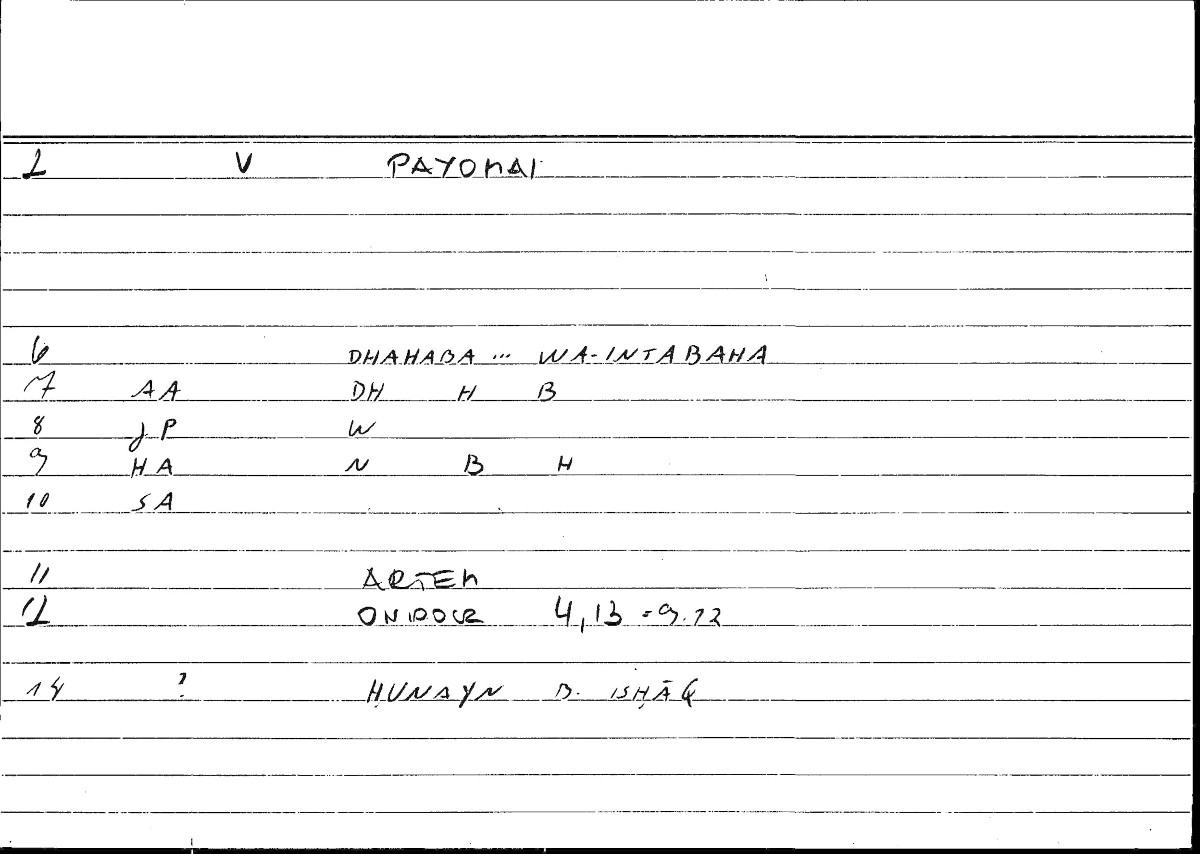 2 V PAYOMAI
6 DHAHABA ... WA-INTABAHA
7 AA DH H B
8 JP W
9 HA N B H
10 SA
11 ARTEM
12 ONIROCR 4,13 = 9.12
14 ? ḤUNAYN B. ISḤĀQ